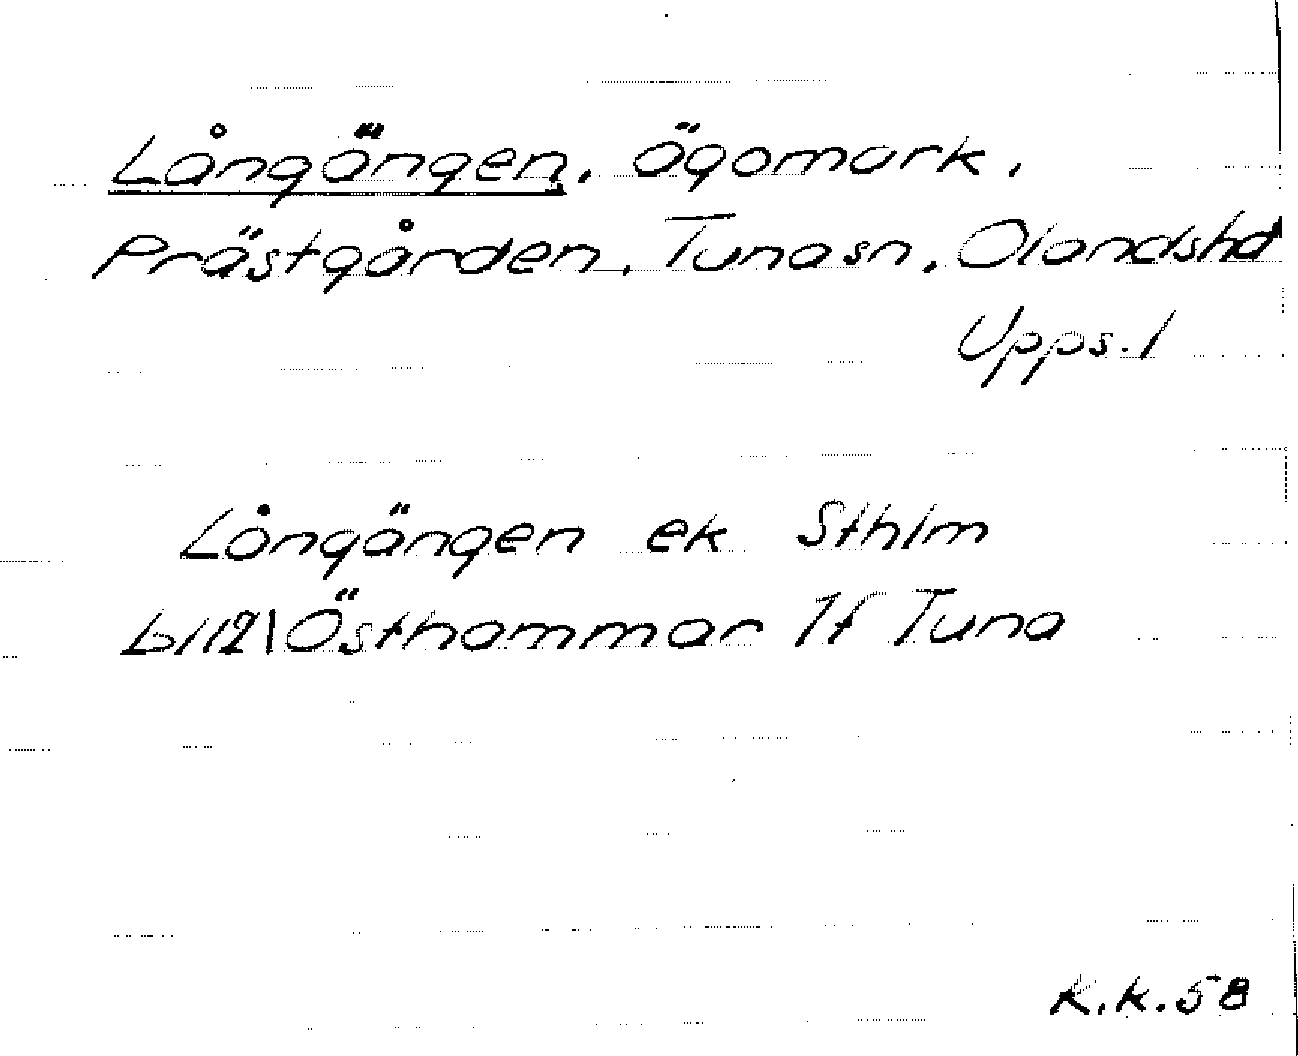 Långängen, ägomark,
Prästgården, Tunasn, Olandshd
Upps.l
Långängen ek Sthlm
bl 12\Östhammar Tf Tuna
K.K.58